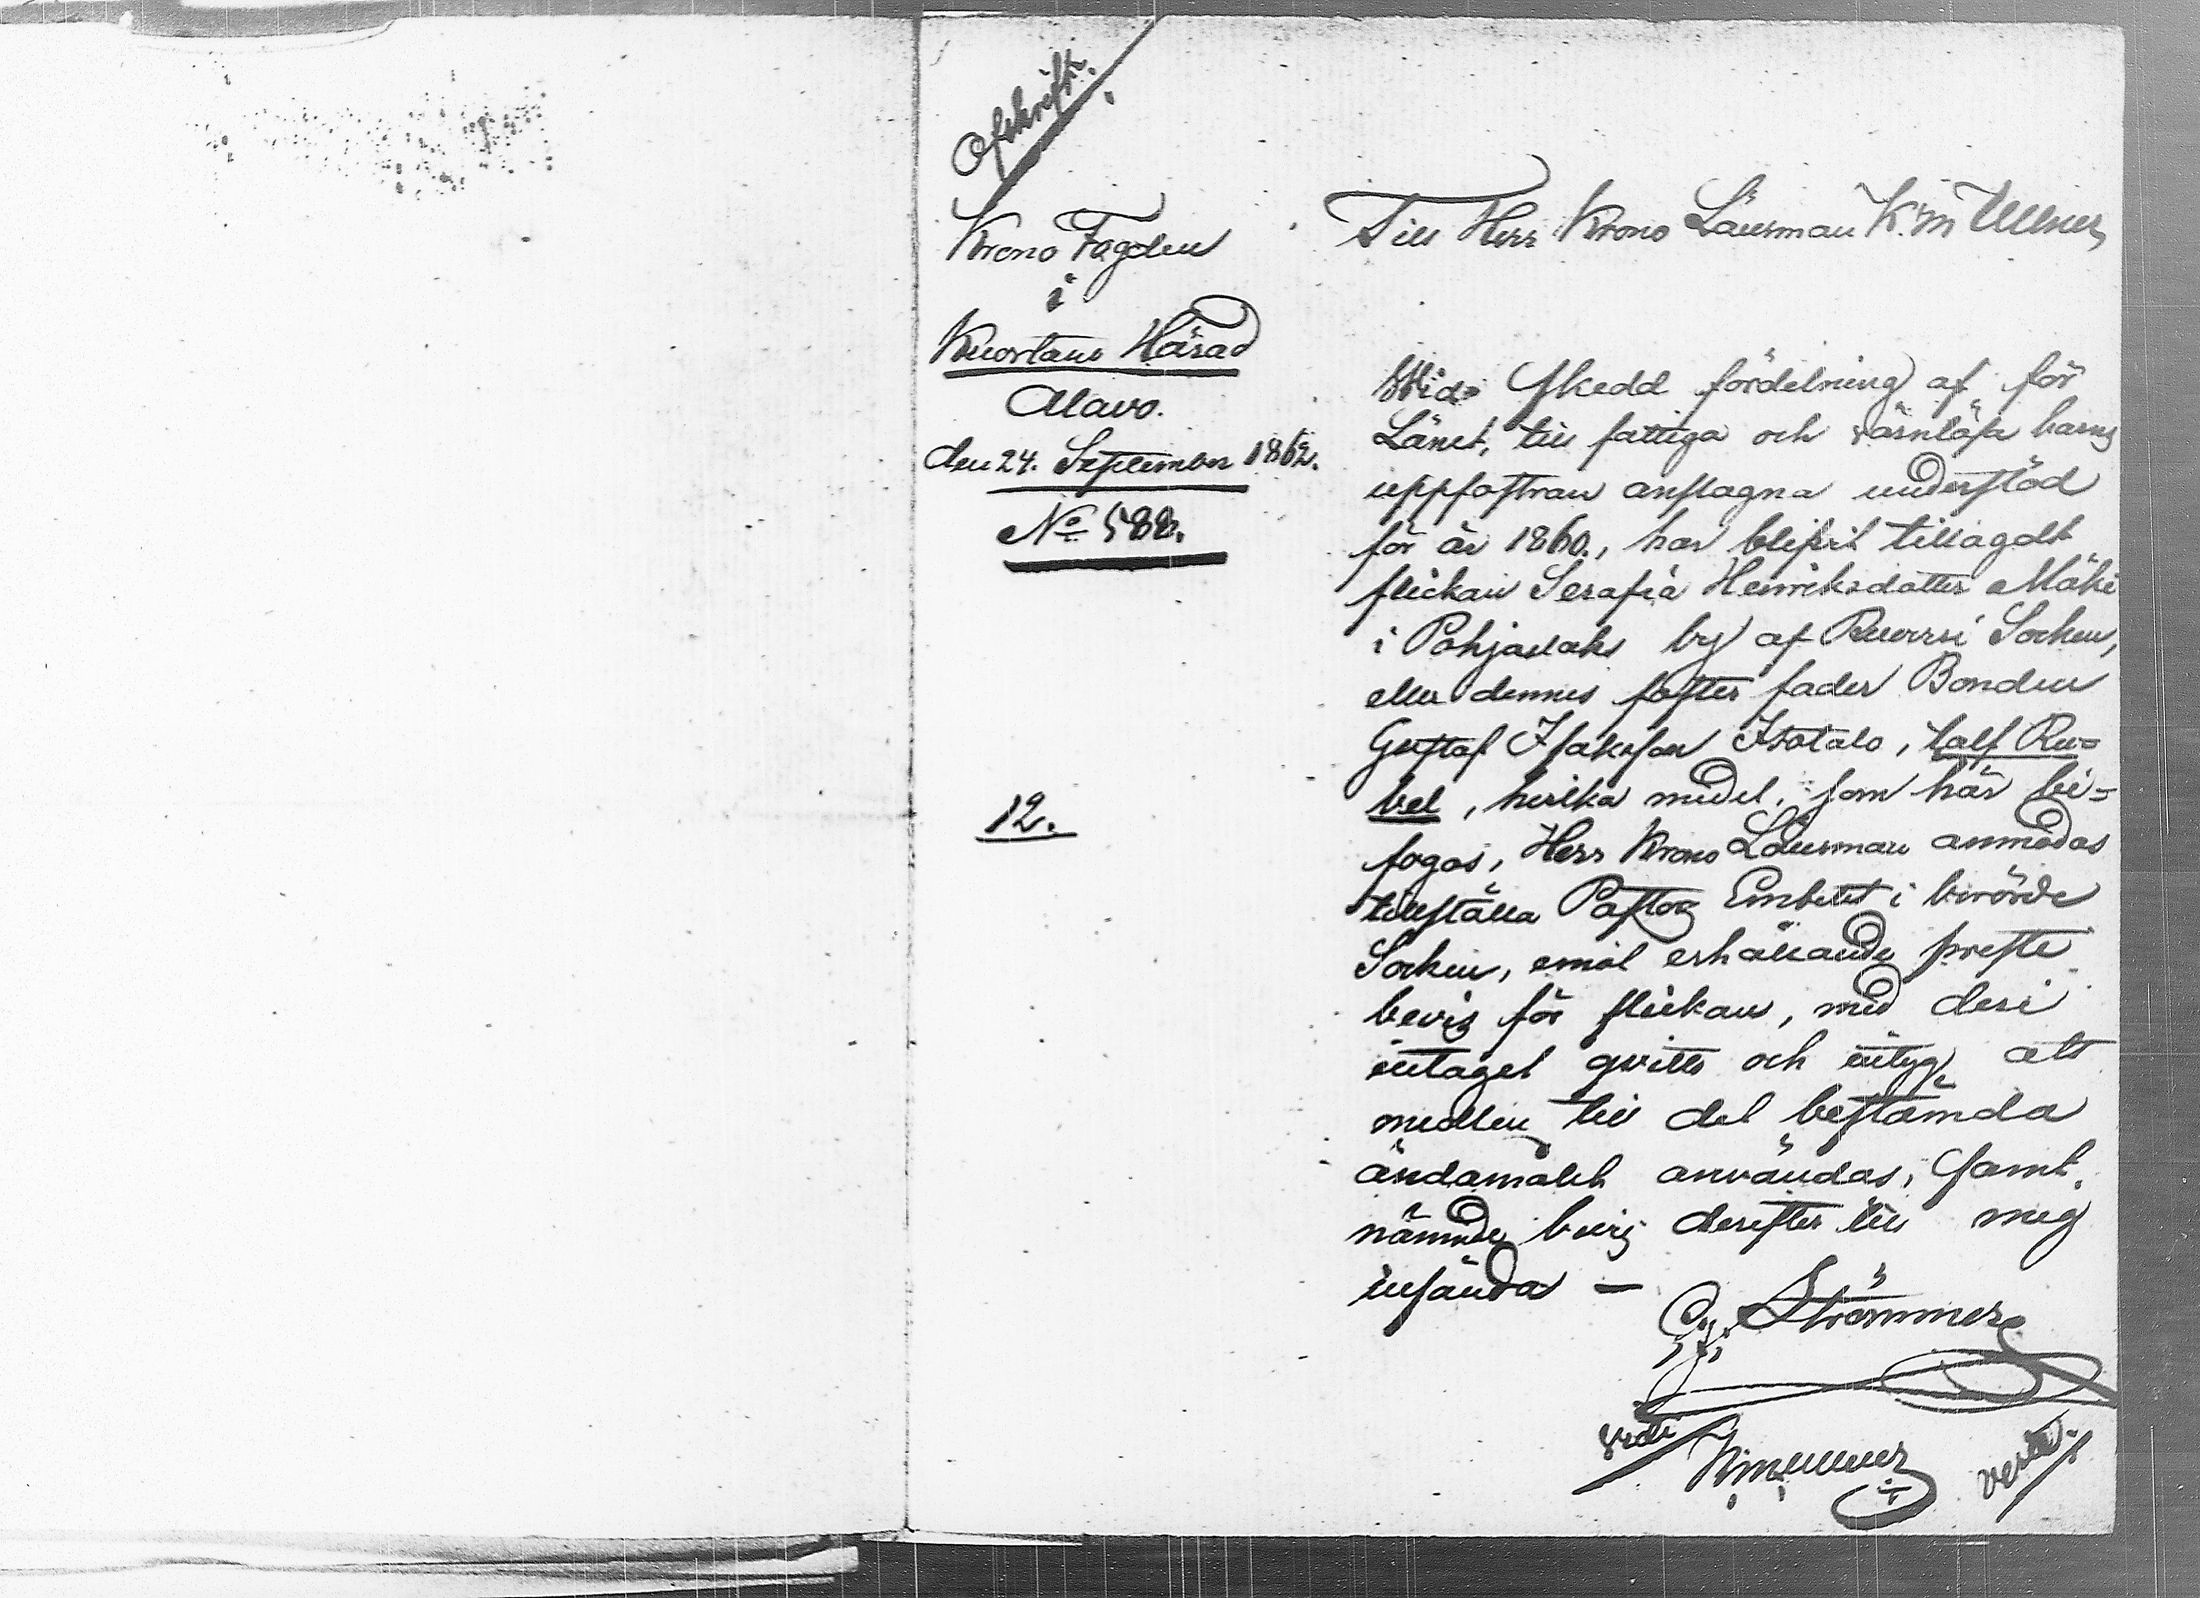 Afskrift.
Krono Fogden
i
Kuortane Härad
Alavo.
den 24. September 1862.
No 582.
12.
Till Herr Krono Länsman K. M. Ullner
Wid skedd fördelning af för
Länet, till fattiga och värnlösa barns
uppfostran anslagna understöd
för år 1860., har blifvit tillagdt
flickan Serafia Henriksdotter Mäki
i Pohjaslaks by af Ruovesi Socken,
eller dennes foster fader Bonden
Gustaf Isaksson Isotalo, tolf Ru=
bel, hvilka medel, som här bi=
fogas, Herr Krono Länsman anmodas
tillställa Pastors Embetet i berörde
Socken, emot erhållande preste
bevis för flickan, med deri
intaget qvitto och intyg att
medlen till det bestämda
ändamålet användas, samt
nämnde bevis derefter till mig
insända —
G. F. Strömmer
Vidi
K M Ullner
verte.